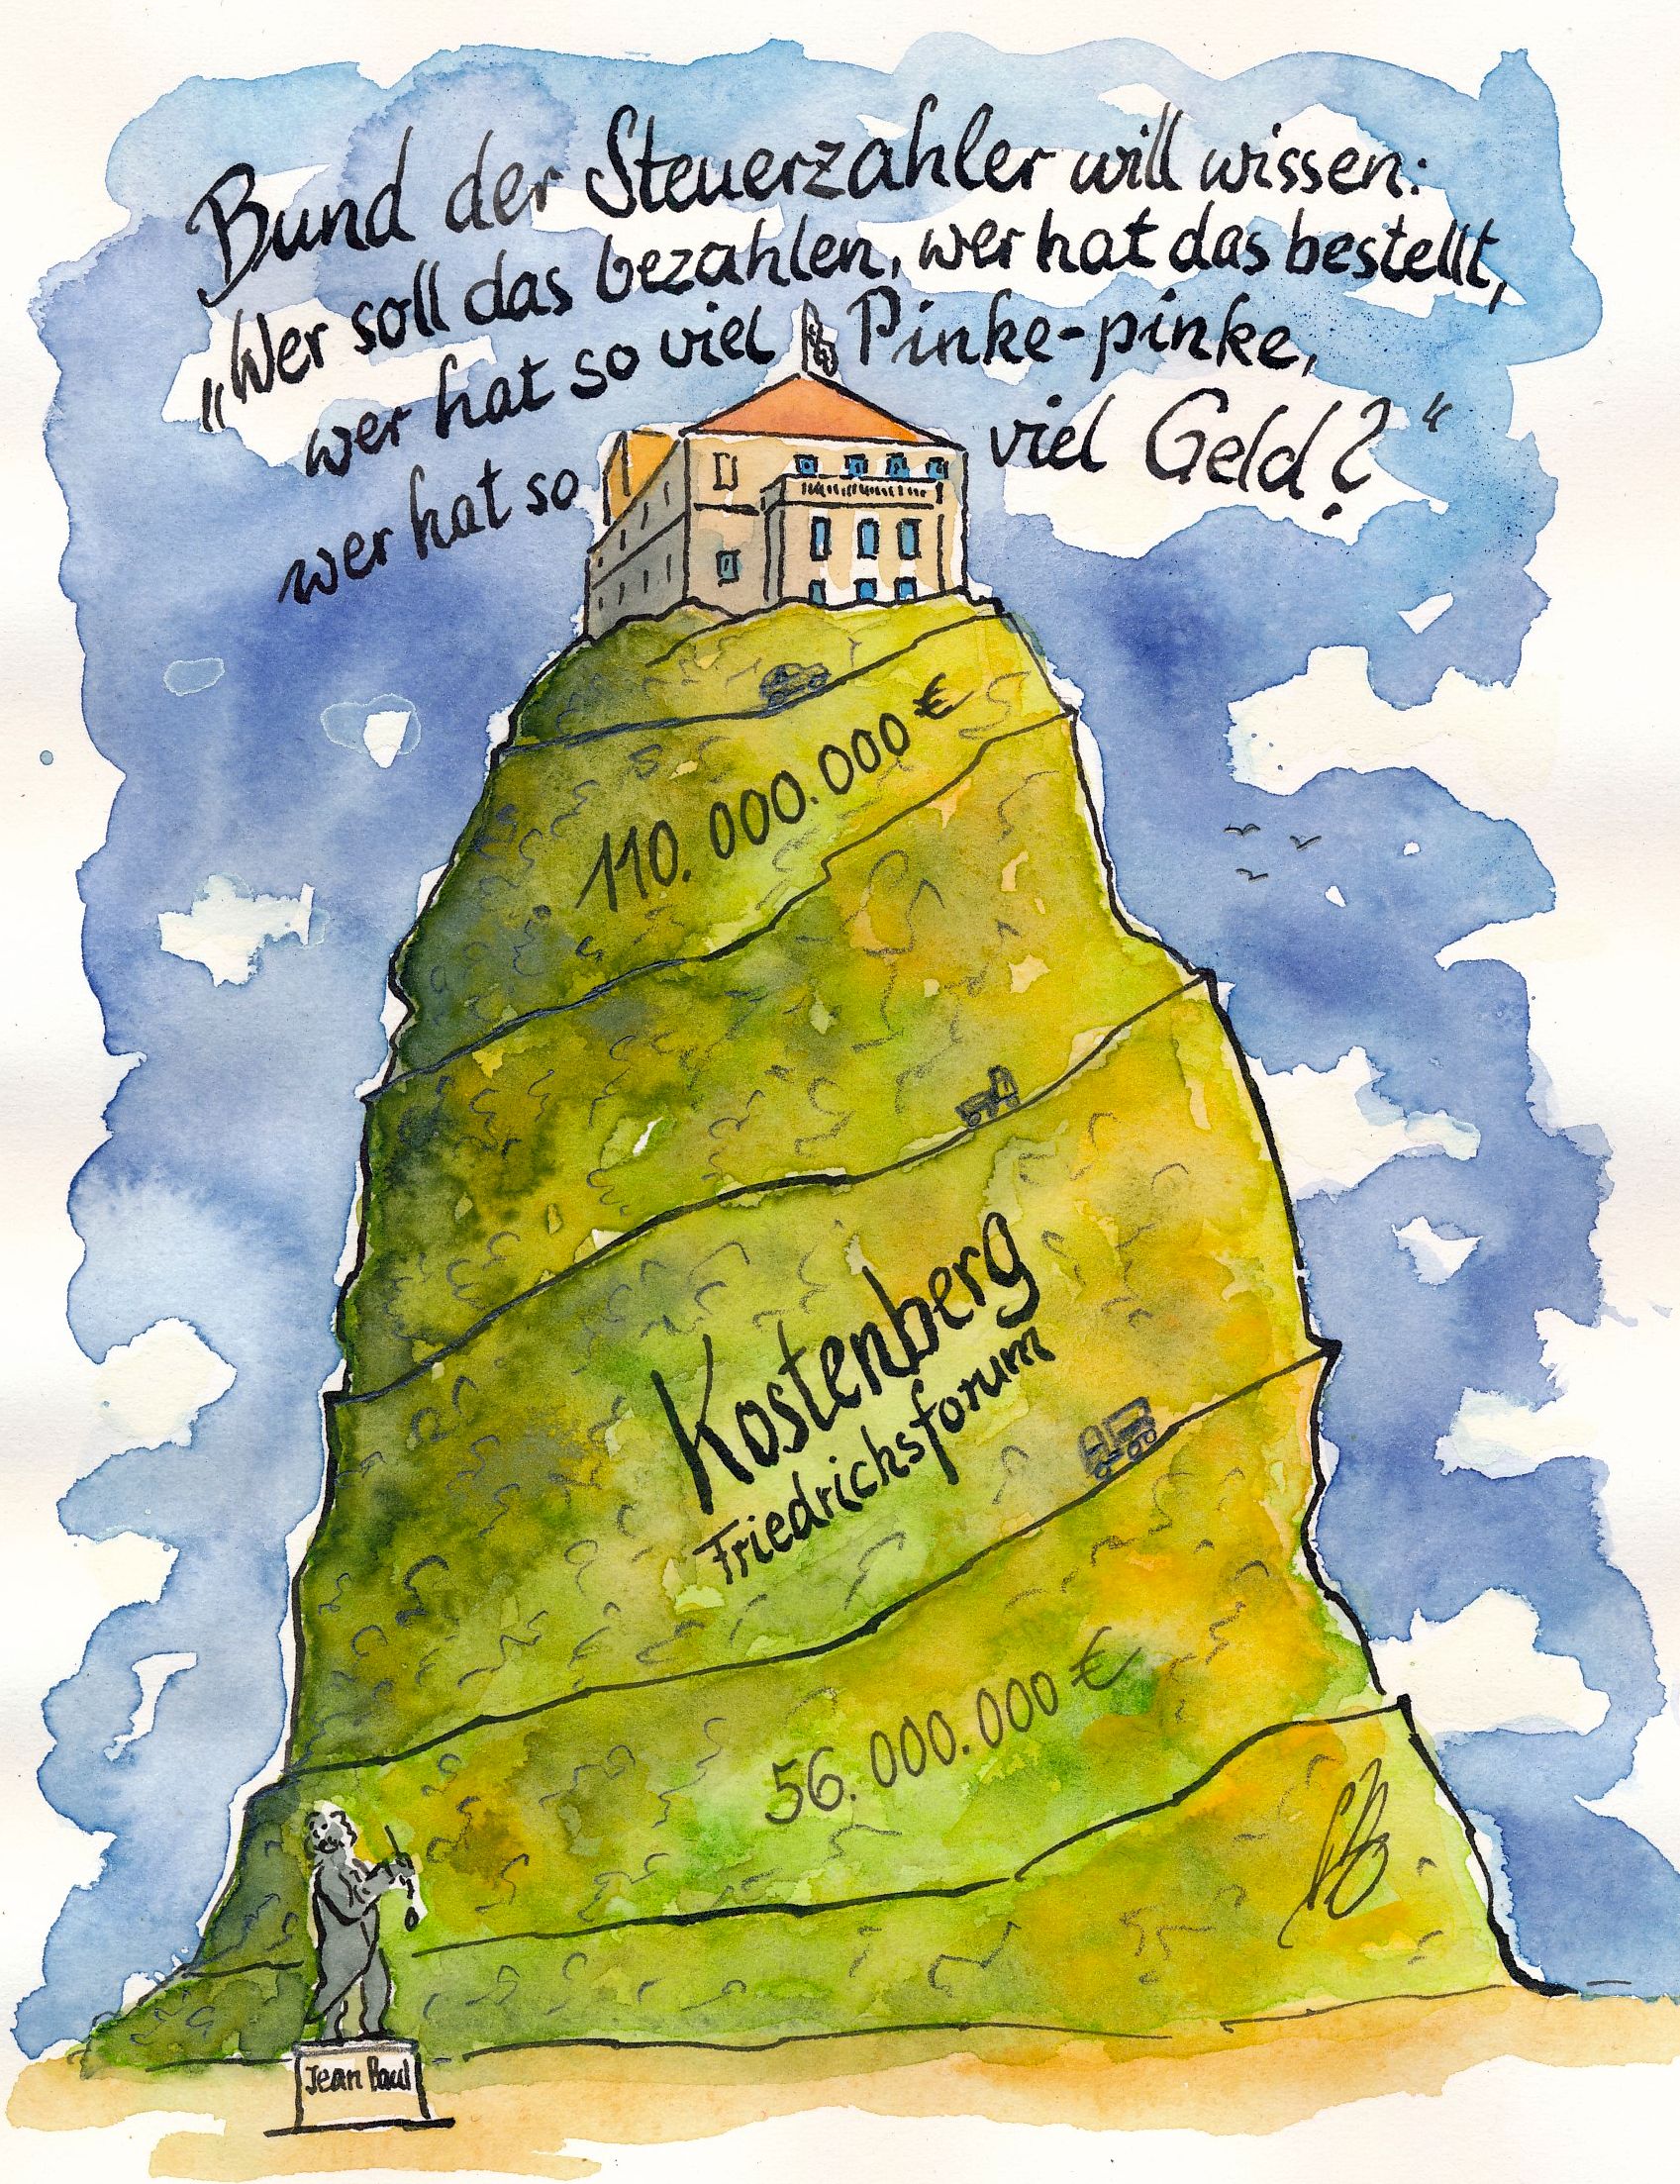 Bund der Steuerzahler will wissen:
„Wer soll das bezahlen, wer hat das bestellt,
wer hat so viel Pinke-pinke,
wer hat so viel Geld?“
110.000.000 €
Kostenberg
Friedrichsforum
56.000.000 €
Jean Paul